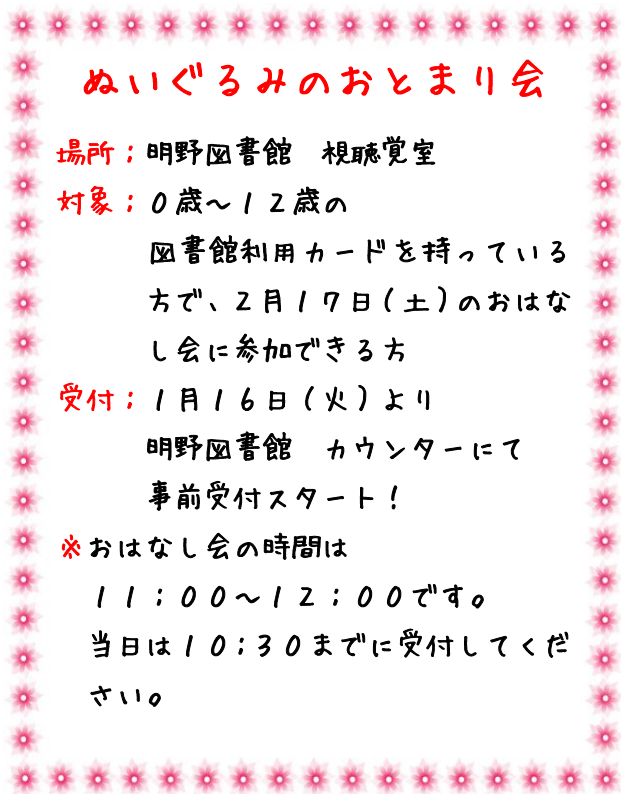 ぬいぐるみのおとまり会
場所；明野図書館　視聴覚室
対象；０歳～１２歳の
図書館利用カードを持っている
方で、２月１７日（土）のおはな
し会に参加できる方
受付；１月１６日（火）より
明野図書館　カウンターにて
事前受付スタート！
※おはなし会の時間は
１１：００～１２：００です。
当日は１０：３０までに受付してくだ
さい。